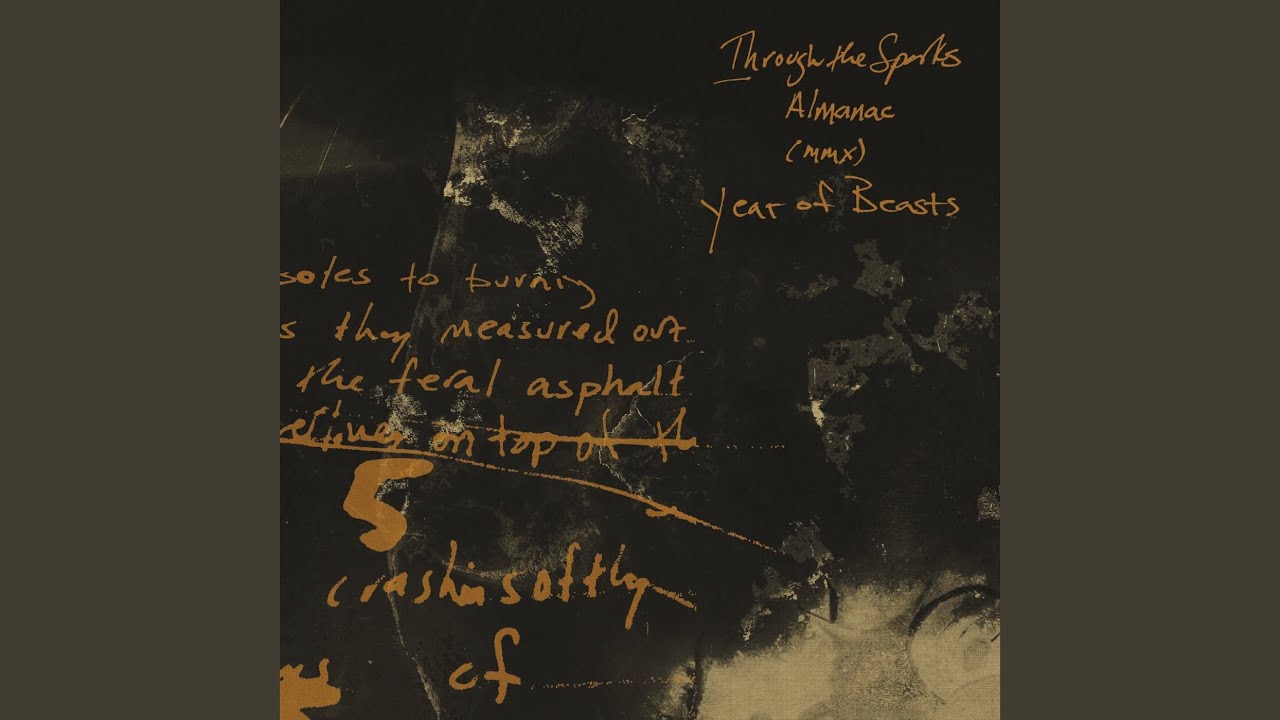 Through the Sparks
Almanac
(mmx)
Year of Beasts
soles to burning
s they measured out
the feral asphalt
on top of th
5
crashin softly
of